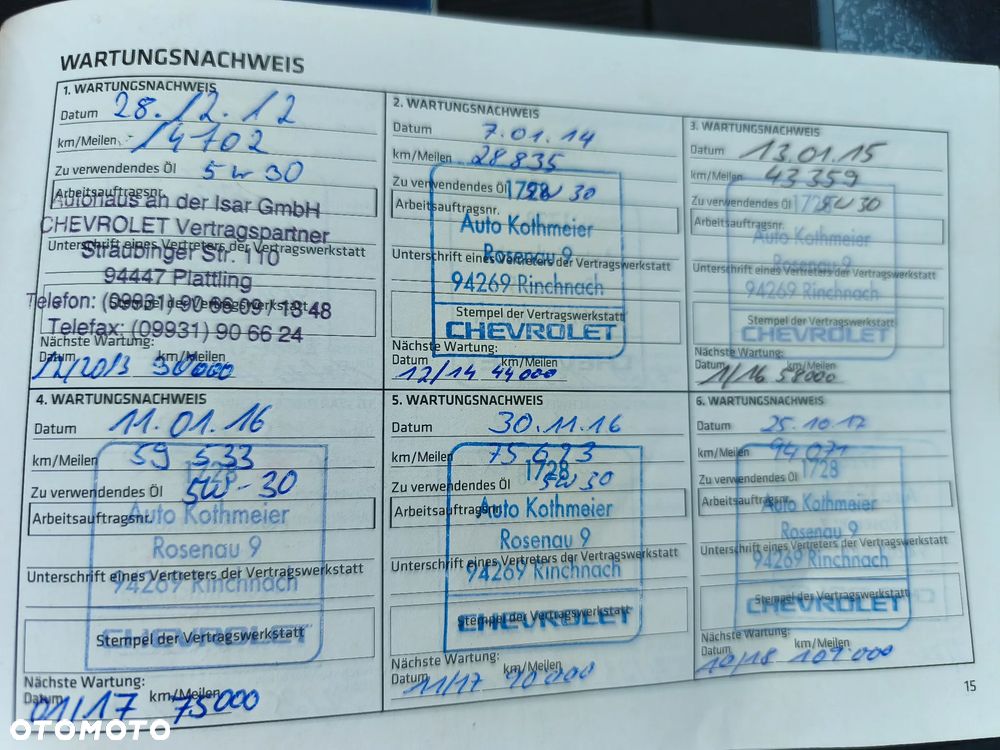 WARTUNGSNACHWEIS
1. WARTUNGSNACHWEIS
Datum 28.12.12
km/Meilen 14702
Zu verwendendes Öl 5w30
Arbeitsauftragsnr.
Autohaus an der Isar GmbH
CHEVROLET Vertragspartner
Unterschrift eines Vertreters der Vertragswerkstatt
Straubinger Str. 110
94447 Plattling
Telefon: (09931) 90 66 09 / 18 48
Stempel der Vertragswerkstatt
Telefax: (09931) 90 66 24
Nächste Wartung:
Datum km/Meilen
12/2013 30000
2. WARTUNGSNACHWEIS
Datum 7.01.14
km/Meilen 28835
Zu verwendendes Öl 5W30
1728
Arbeitsauftragsnr.
Auto Kothmeier
Rosenau 9
Unterschrift eines Vertreters der Vertragswerkstatt
94269 Rinchnach
Stempel der Vertragswerkstatt
CHEVROLET
Nächste Wartung:
Datum km/Meilen
12/14 44000
3. WARTUNGSNACHWEIS
Datum 13.01.15
km/Meilen 43359
Zu verwendendes Öl 5W30
1728
Arbeitsauftragsnr.
Auto Kothmeier
Rosenau 9
Unterschrift eines Vertreters der Vertragswerkstatt
94269 Rinchnach
Stempel der Vertragswerkstatt
CHEVROLET
Nächste Wartung:
Datum km/Meilen
1/16 58000
4. WARTUNGSNACHWEIS
Datum 11.01.16
km/Meilen 59533
1728
Zu verwendendes Öl 5W-30
Arbeitsauftragsnr.
Auto Kothmeier
Rosenau 9
Unterschrift eines Vertreters der Vertragswerkstatt
94269 Rinchnach
Stempel der Vertragswerkstatt
CHEVROLET
Nächste Wartung:
Datum km/Meilen
01/17 75000
5. WARTUNGSNACHWEIS
Datum 30.11.16
km/Meilen 75623
1728
Zu verwendendes Öl 5W30
Arbeitsauftragsnr.
Auto Kothmeier
Rosenau 9
Unterschrift eines Vertreters der Vertragswerkstatt
94269 Rinchnach
Stempel der Vertragswerkstatt
CHEVROLET
Nächste Wartung:
Datum km/Meilen
11/17 90000
6. WARTUNGSNACHWEIS
Datum 25.10.17
km/Meilen 94071
1728
Zu verwendendes Öl
Arbeitsauftragsnr.
Auto Kothmeier
Rosenau 9
Unterschrift eines Vertreters der Vertragswerkstatt
94269 Rinchnach
Stempel der Vertragswerkstatt
CHEVROLET
Nächste Wartung:
Datum km/Meilen
10/18 109000
15
OTOMOTO